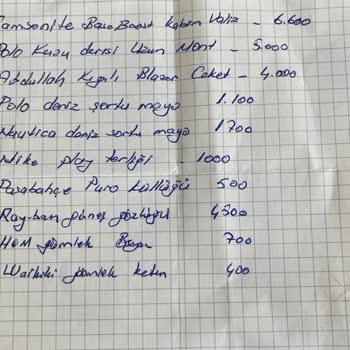 amsonite Base Boost kabin Valiz - 6.600
Polo Kuzu derisi Uzun Mont - 5.000
Abdullah Kığılı Blazer Ceket - 4.000
Polo deniz şortu mayo 1.100
Nautica deniz şortu mayo 1700
Nike play terliği - 1000
Paşabahçe Puro küllüğü 500
Ray-ban güneş gözlüğü 4500
H&M gömlek 700
Waikiki gömlek keten 400